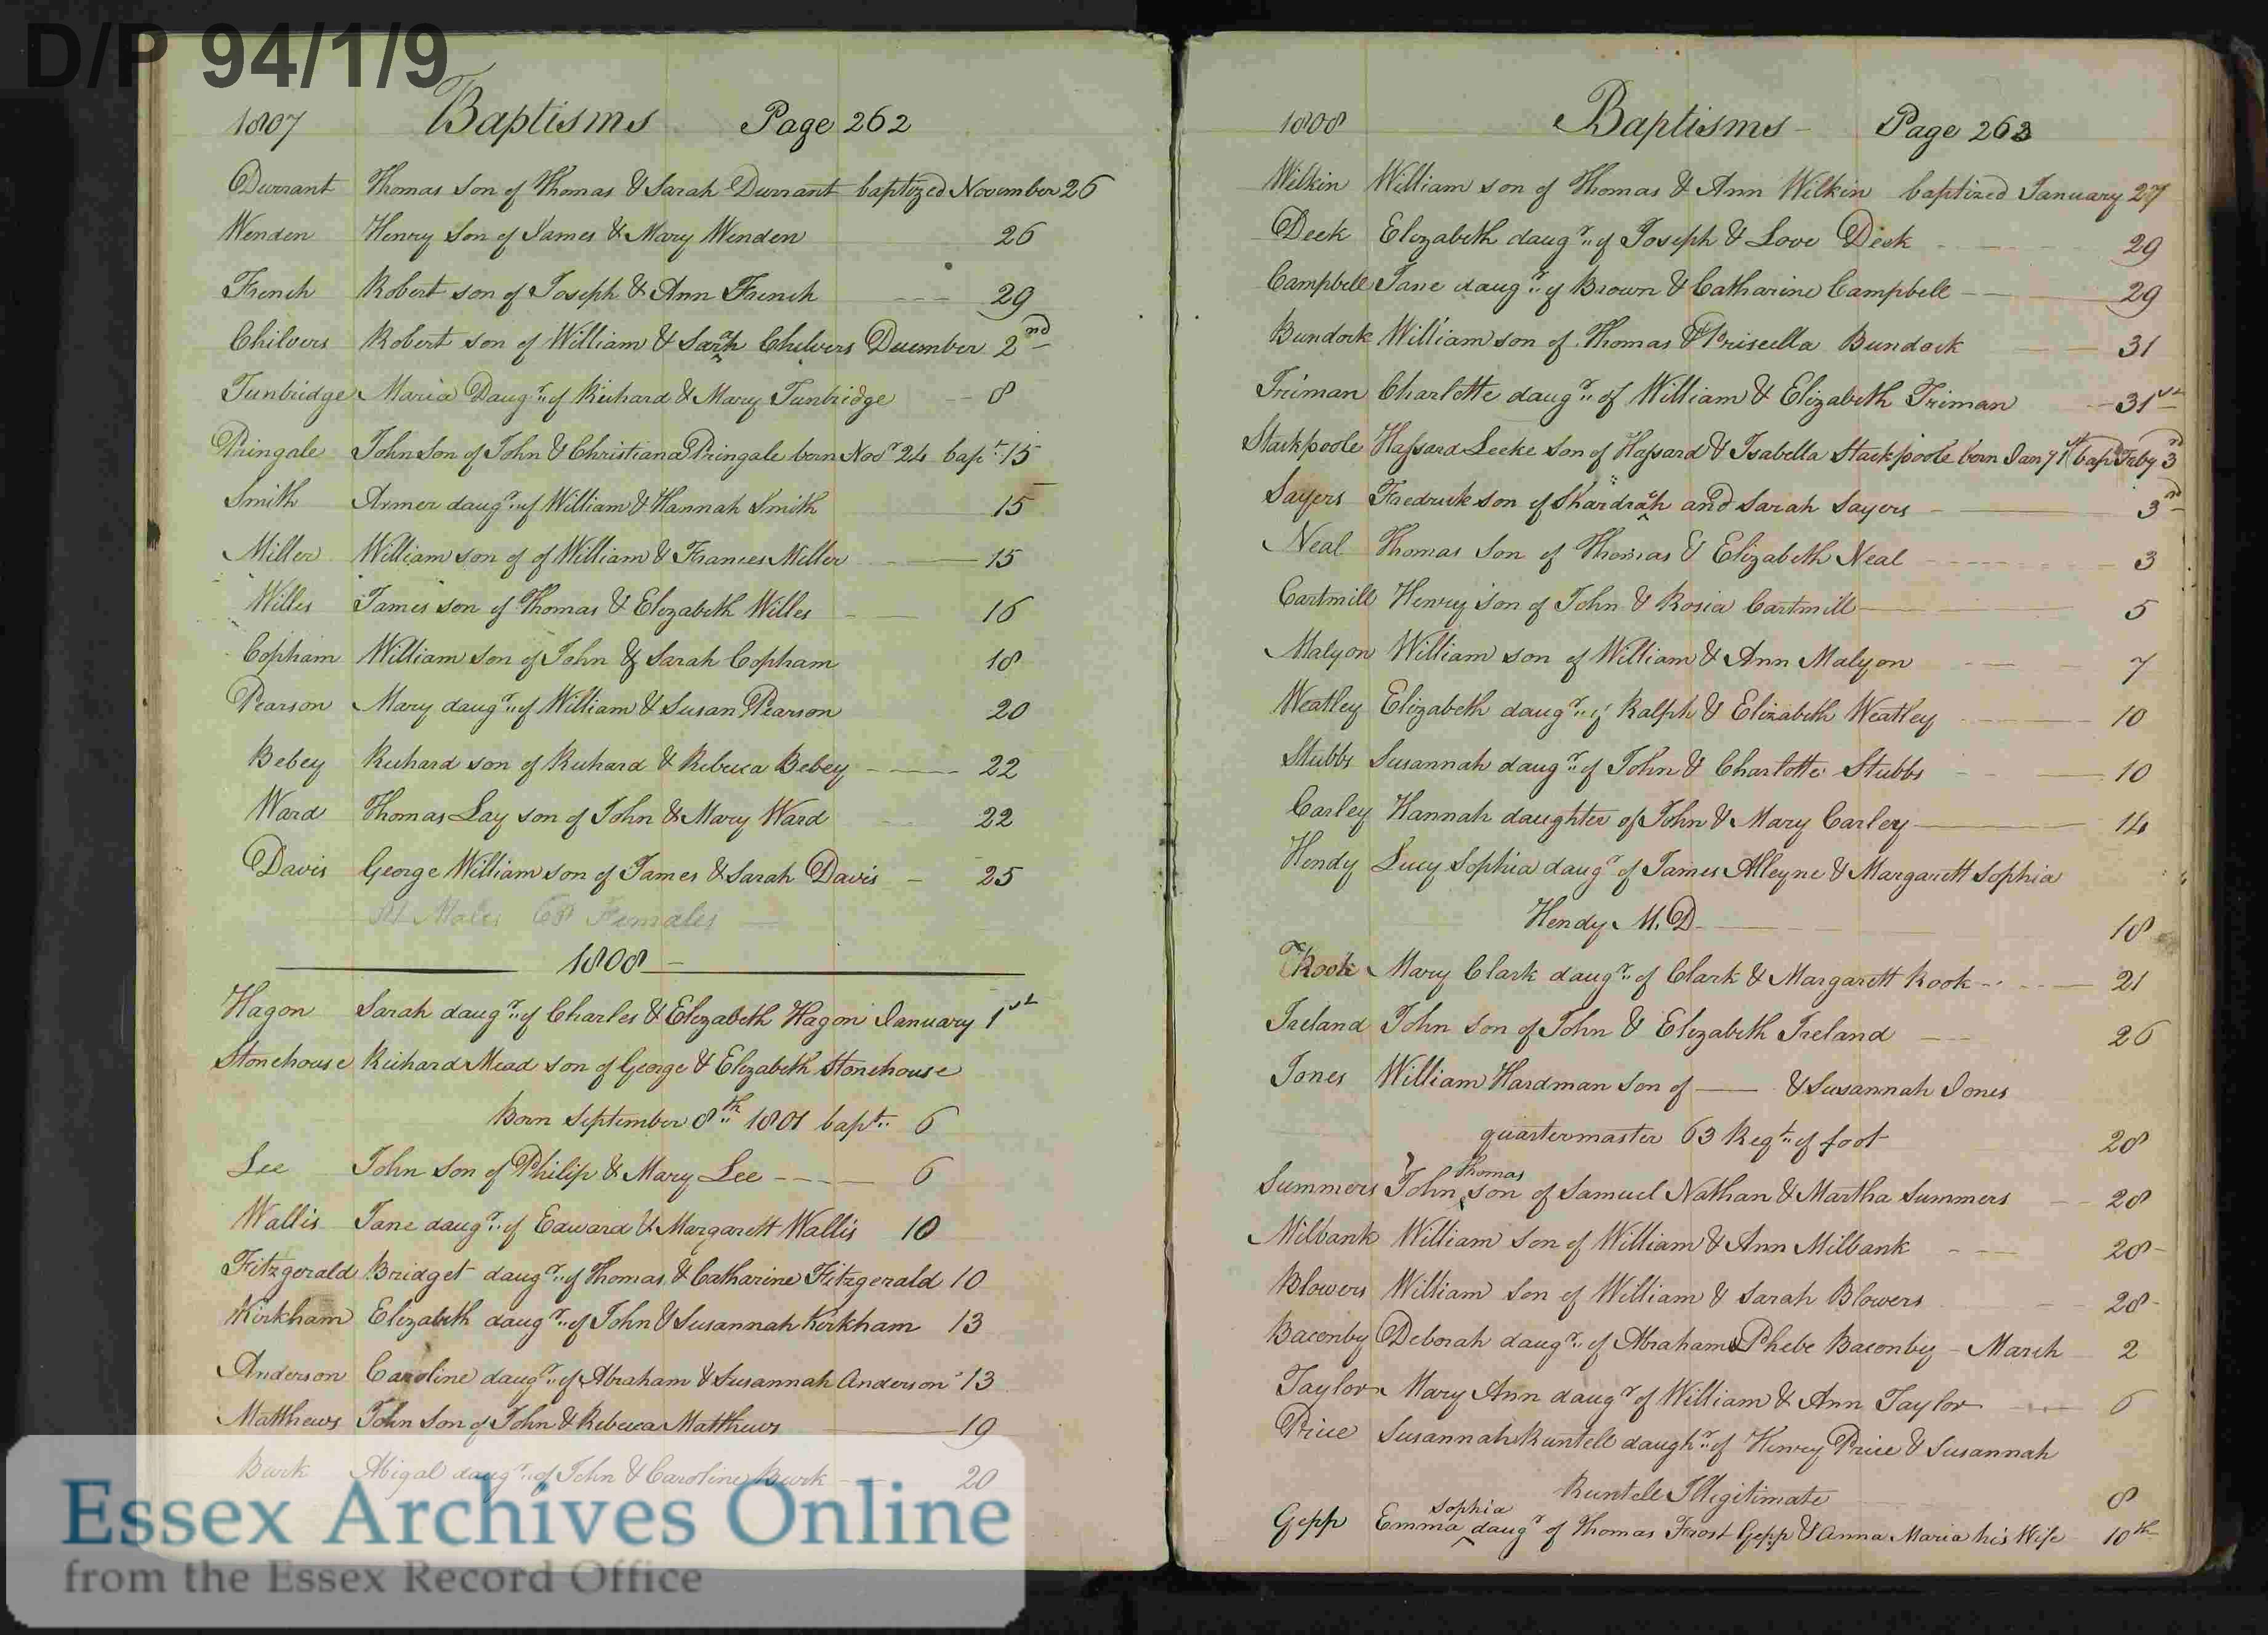 D/P 94/1/9
1807 Baptisms Page 262
Durrant Thomas Son of Thomas & Sarah Durrant baptized November 26
Wenden Henry Son of James & Mary Wenden 26
French Robert son of Joseph & Ann French 29
Chilvers Robert son of William & Sarah Chilvers December 2nd
Tunbridge Maria Daugr. of Richard & Mary Tunbridge 8
Pringale John Son of John & Christiana Pringale born Novr 24 bapt. 15
Smith Armer daugr. of William & Hannah Smith 15
Miller William son of of William & Frances Miller 15
Willes James son of Thomas & Elizabeth Willes 16
Copham William Son of John & Sarah Copham 18
Pearson Mary daugr. of William & Susan Pearson 20
Bebey Richard son of Richard & Rebecca Bebey 22
Ward Thomas Lay son of John & Mary Ward 22
Davis George William son of James & Sarah Davis 25
Males Females
1808
Hagon Sarah daugr. of Charles & Elizabeth Hagon January 1st
Stonehouse Richard Mead son of George & Elizabeth Stonehouse
Born September 8th 1801 bapt. 6
Lee John Son of Philip & Mary Lee 6
Wallis Jane daugr. of Edward & Margarett Wallis 10
Fitzgerald Bridget daugr. of Thomas & Catharine Fitzgerald 10
Kirkham Elizabeth daugr. of John & Susannah Kirkham 13
Anderson Caroline daugr. of Abraham & Susannah Anderson 13
Matthews John Son of John & Rebecca Matthews 19
Burk Abigal daugr. of John & Caroline Burk 20
Essex Archives Online
from the Essex Record Office
1808 Baptisms Page 263
Wilkin William son of Thomas & Ann Wilkin baptized January 27
Deek Elizabeth daugr. of Joseph & Love Deek 29
Campbell Jane daugr. of Brown & Catharine Campbell 29
Bundock William son of Thomas & Priscilla Bundock 31
Triman Charlotte daugr. of William & Elizabeth Triman 31st
Stackpoole Hassard Leeke Son of Hassard & Isabella Stackpoole born Jany 1st bapd Feby 3rd
Sayers Fredrick son of Shardrach and Sarah Sayers 3rd
Neal Thomas Son of Thomas & Elizabeth Neal 3
Cartmill Henry son of John & Rosia Cartmill 5
Malyon William son of William & Ann Malyon 7
Weatley Elizabeth daugr. of Ralph & Elizabeth Weatley 10
Stubbs Susannah daugr. of John & Charlotte Stubbs 10
Carley Hannah daughter of John & Mary Carley 14
Hendy Lucy Sophia daugr. of James Alleyne & Margarett Sophia
Hendy M.D. 18
Rook Mary Clark daugr. of Clark & Margarett Rook 21
Ireland John Son of John & Elizabeth Ireland 26
Jones William Hardman Son of —— & Susannah Jones
quartermaster 63 Regt. of foot 28
Summers John Thomas son of Samuel Nathan & Martha Summers 28
Milbank William Son of William & Ann Milbank 28
Blowers William Son of William & Sarah Blowers 28
Baconby Deborah daugr. of Abraham & Phebe Baconby March 2
Taylor Mary Ann daugr of William & Ann Taylor 6
Price Susannah Runtell daughr. of Henry Price & Susannah
Runtell Illegitimate 8
Gepp Emma Sophia daugr of Thomas Frost Gepp & Anna Maria his Wife 10th